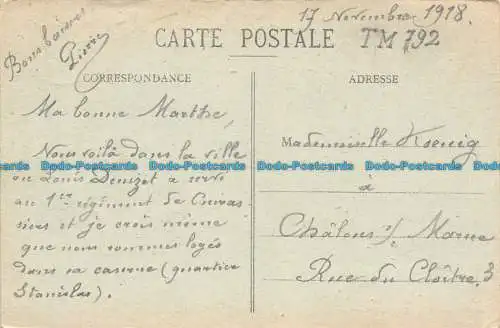 17 Novembre 1918.
Bons baisers
Pierre
CARTE POSTALE
TM 792
CORRESPONDANCE
ADRESSE
Ma bonne Marthe,
Nous voilà dans la ville
où Louis Denizet a servi
au 1er régiment de Cuiras-
siers et je crois même
que nous sommes logés
dans sa caserne (quartier
Stanislas).
Mademoiselle Koenig
à
Châlons s/ Marne
Rue du Cloître, 3
Dodo-Postcards.com